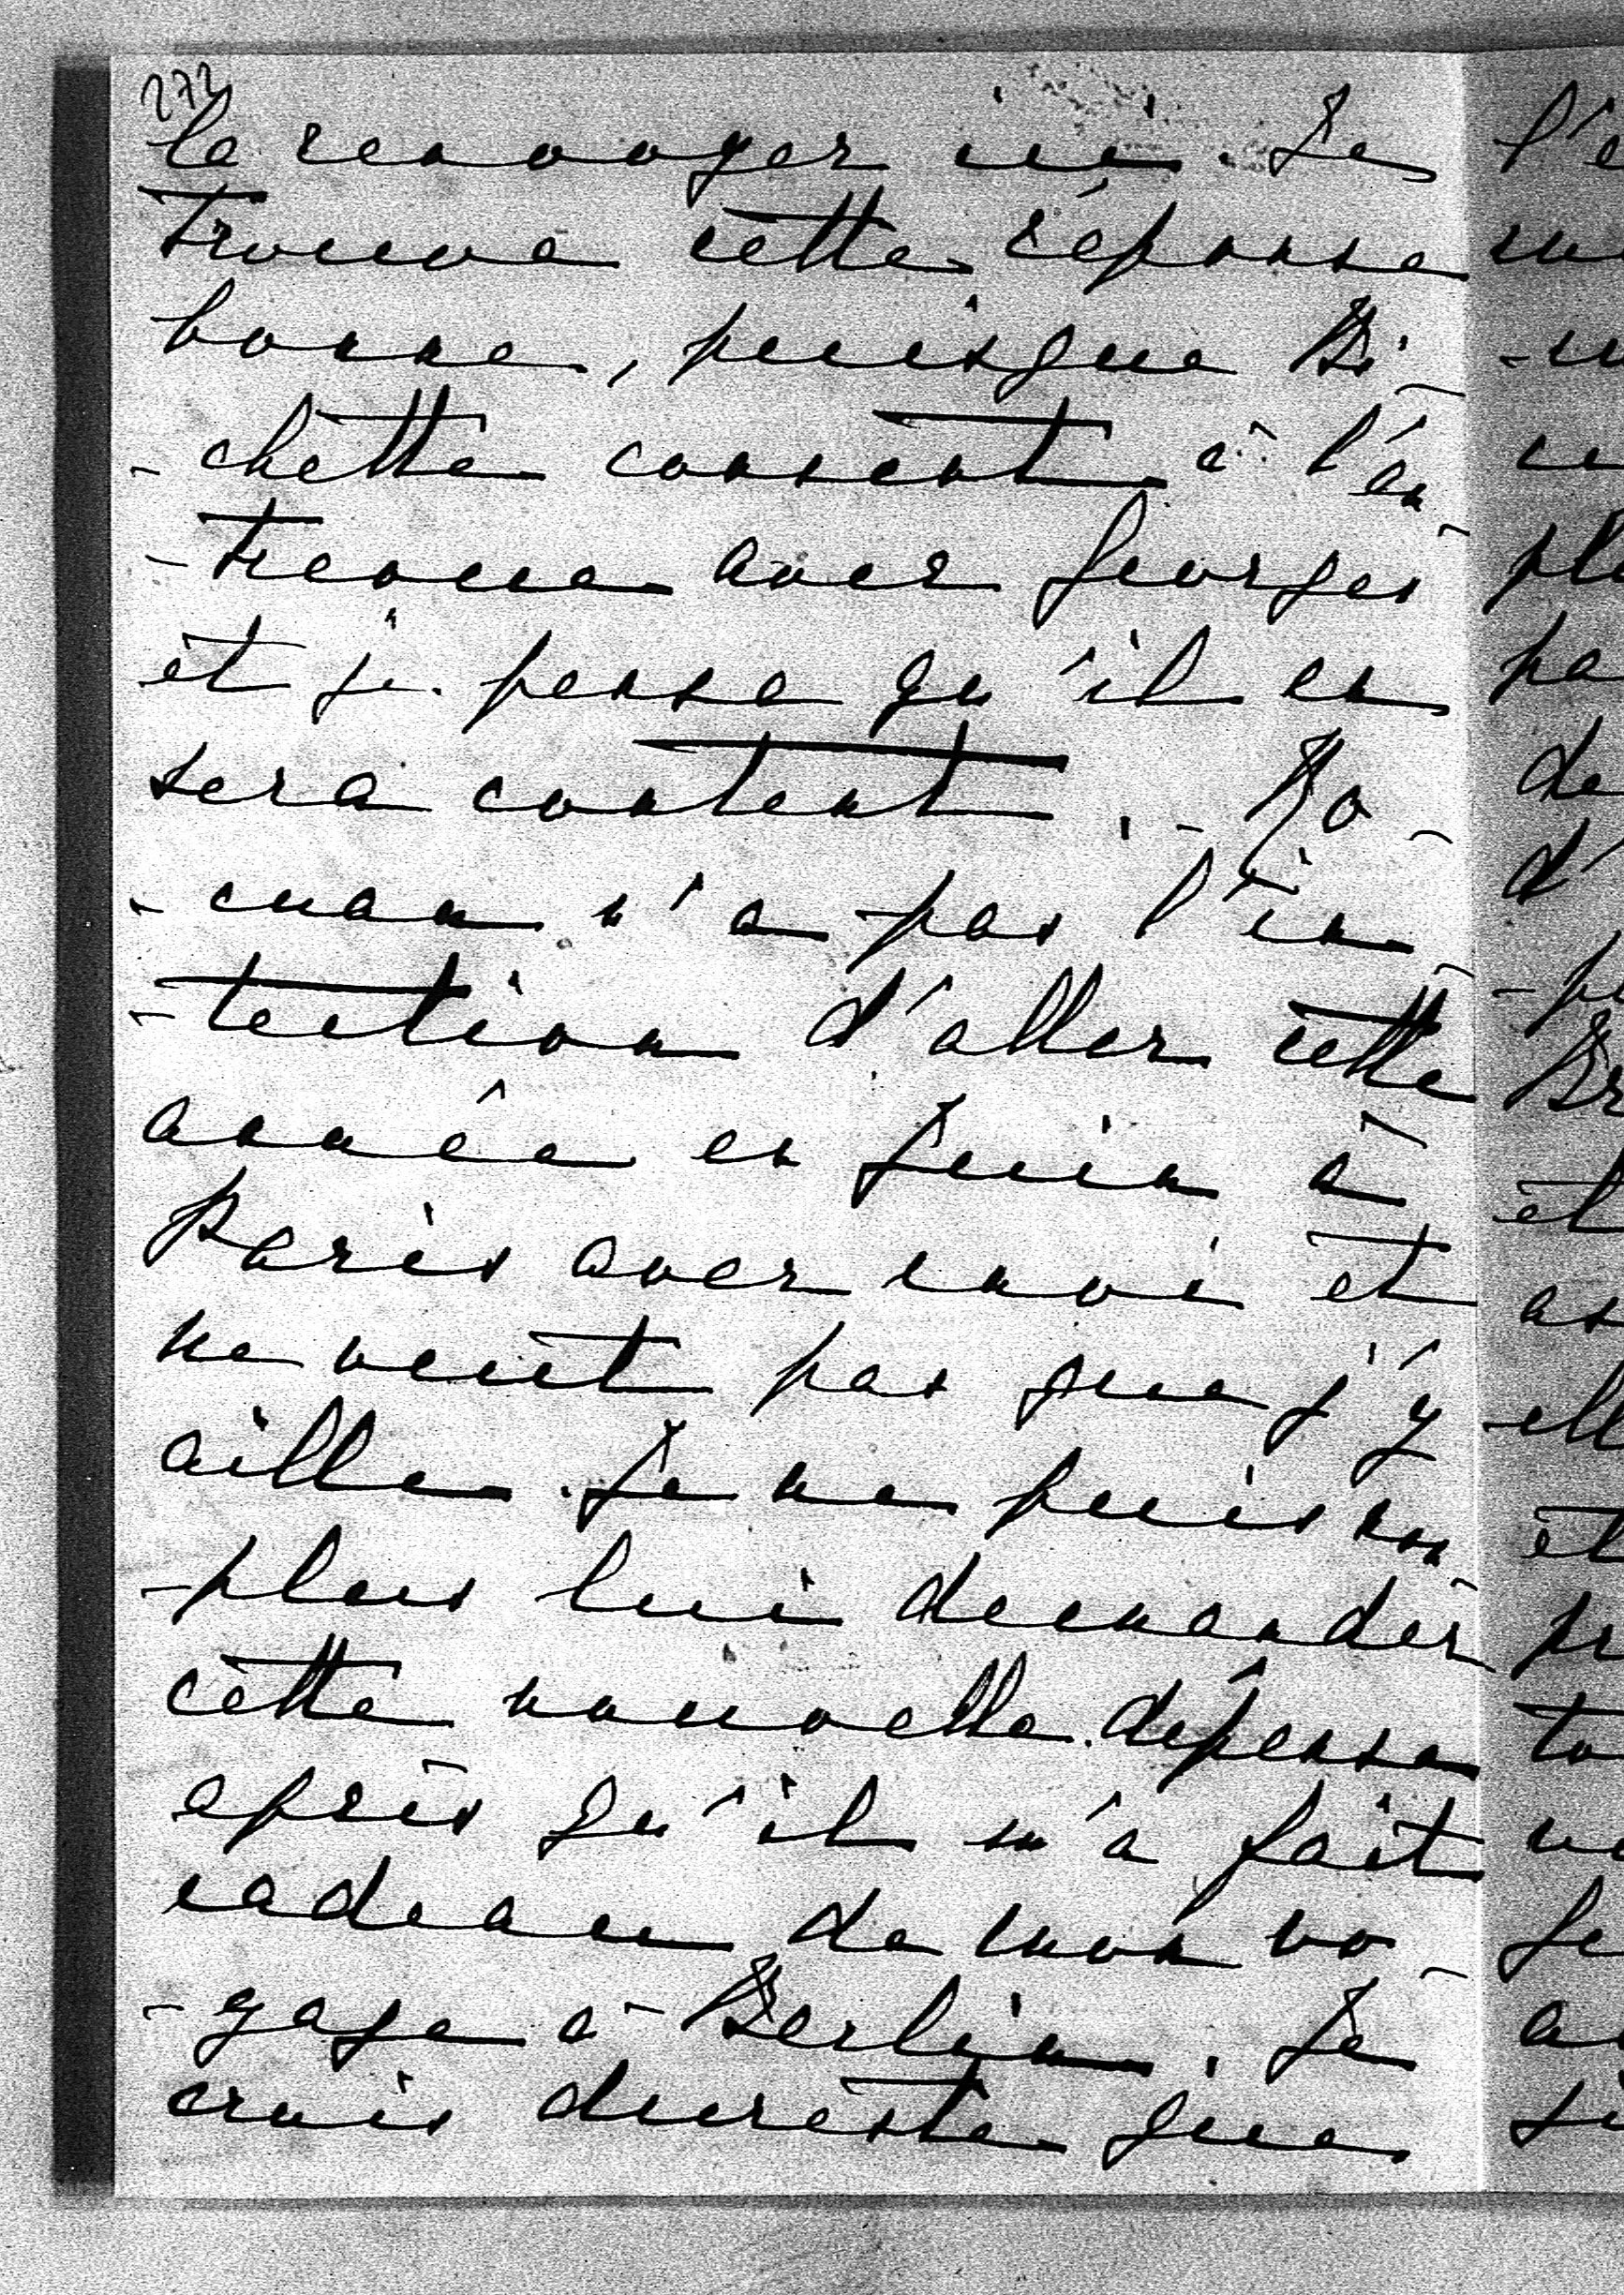 272
le renvoyer ici. Je
trouve cette réponse
bonne, puisque Bi-
-chette consent à l'en-
-trevue avec Georges
et je pense qu'il en
sera content. - Ro-
-man n'a pas l'in-
-tention d'aller cette
année en Juin à
Paris avec moi et
ne veut pas que j'y
aille. Je ne puis non-
-plus lui demander
cette nouvelle dépense
après qu'il m'a fait
cadeau de mon vo-
-yage à Berlin. Je
crois dureste que